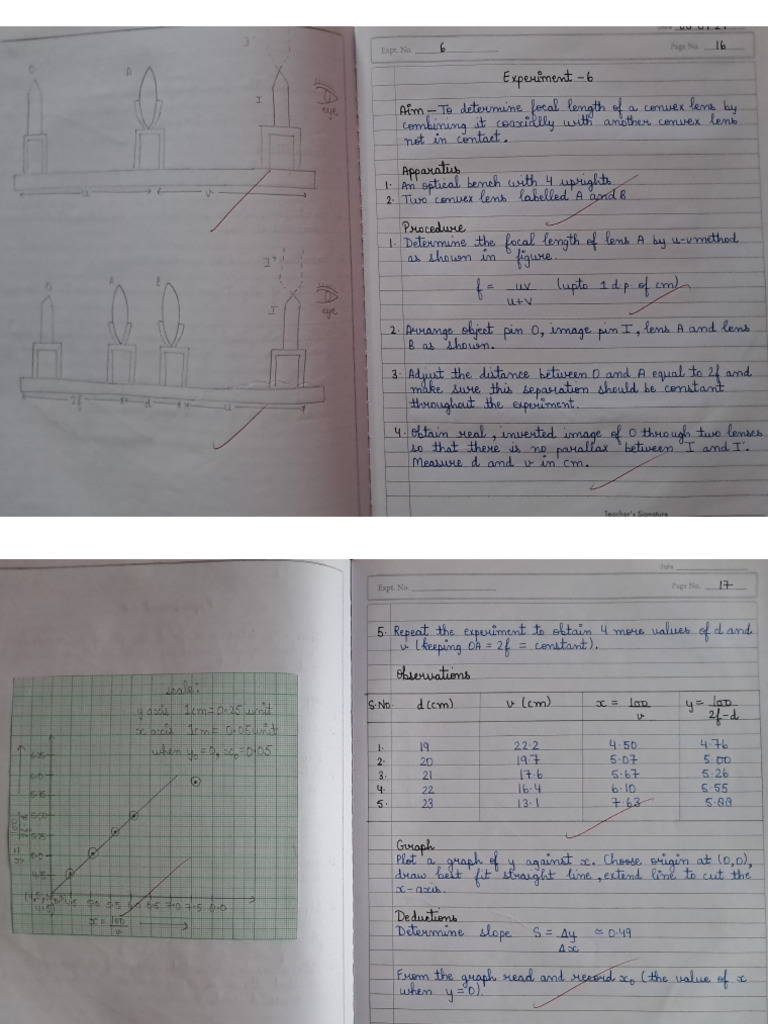 Expt. No. 6
Page No. 16
Experiment - 6
Aim - To determine focal length of a convex lens by
combining it coaxially with another convex lens
not in contact.
Apparatus
1. An optical bench with 4 uprights
2. Two convex lens labelled A and B
Procedure
1. Determine the focal length of lens A by u-v method
as shown in figure.
f = uv/u+v (upto 1 d.p. of cm)
2. Arrange object pin O, image pin I, lens A and lens
B as shown.
3. Adjust the distance between O and A equal to 2f and
make sure this separation should be constant
throughout the experiment.
4. Obtain real, inverted image of O through two lenses
so that there is no parallax between I and I'.
Measure d and v in cm.
Teacher's Signature
O
A
I
eye
u
v
A
B
I'
I
eye
2f
d
u
Date
Expt. No.
Page No. 17
5. Repeat the experiment to obtain 4 more values of d and
v (keeping OA = 2f = constant).
Observations
S.No. d (cm) v (cm) x = 100/v y = 100/2f-d
1. 19 22.2 4.50 4.76
2. 20 19.7 5.07 5.00
3. 21 17.6 5.67 5.26
4. 22 16.4 6.10 5.55
5. 23 13.1 7.63 5.88
Graph
Plot a graph of y against x. Choose origin at (0,0),
draw best fit straight line, extend line to cut the
x-axis.
Deductions
Determine slope S = Δy/Δx ≈ 0.49
From the graph read and record x₀ (the value of x
when y = 0).
scale:
y axis 1cm = 0.25 unit
x axis 1cm = 0.05 unit
when y₀ = 0, x₀ = 0.05
x = 100/v